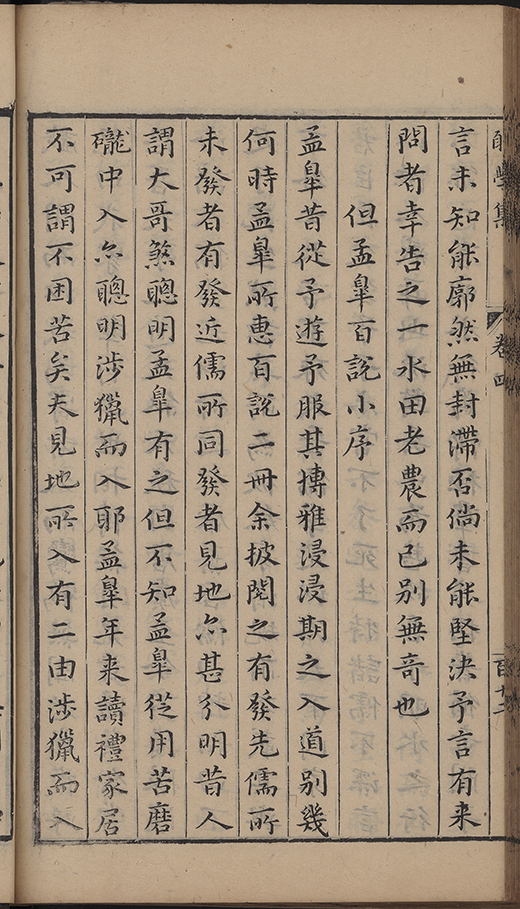 學集 卷四
言未知能廓然無封滯否倘未能堅決予言有来
問者幸告之一水田老農而已別無竒也
但孟臯百說小序
孟臯昔從予遊予服其博雅浸浸期之入道別幾
何時孟臯所惠百說二冊余披閱之有發先儒所
未發者有發近儒所同發者見地亦甚分明昔人
謂大哥煞聰明孟臯有之但不知孟臯從用苦磨
礲中入亦聰明涉獵而入耶孟臯年来讀禮家居
不可謂不困苦矣夫見地所入有二由涉獵而入